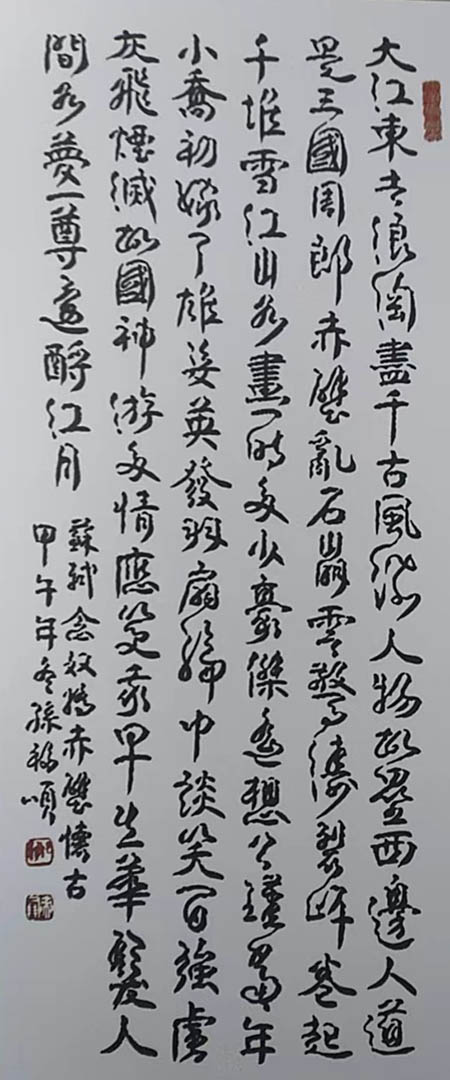 大江東去浪淘盡千古風流人物故壘西邊人道
是三國周郎赤壁亂石崩雲驚濤裂岸卷起
千堆雪江山如畫一時多少豪傑遙想公瑾當年
小喬初嫁了雄姿英發羽扇綸巾談笑間強虜
灰飛煙滅故國神游多情應笑我早生華髮人
間如夢一尊還酹江月
蘇軾念奴嬌赤壁懷古
甲午年冬孫